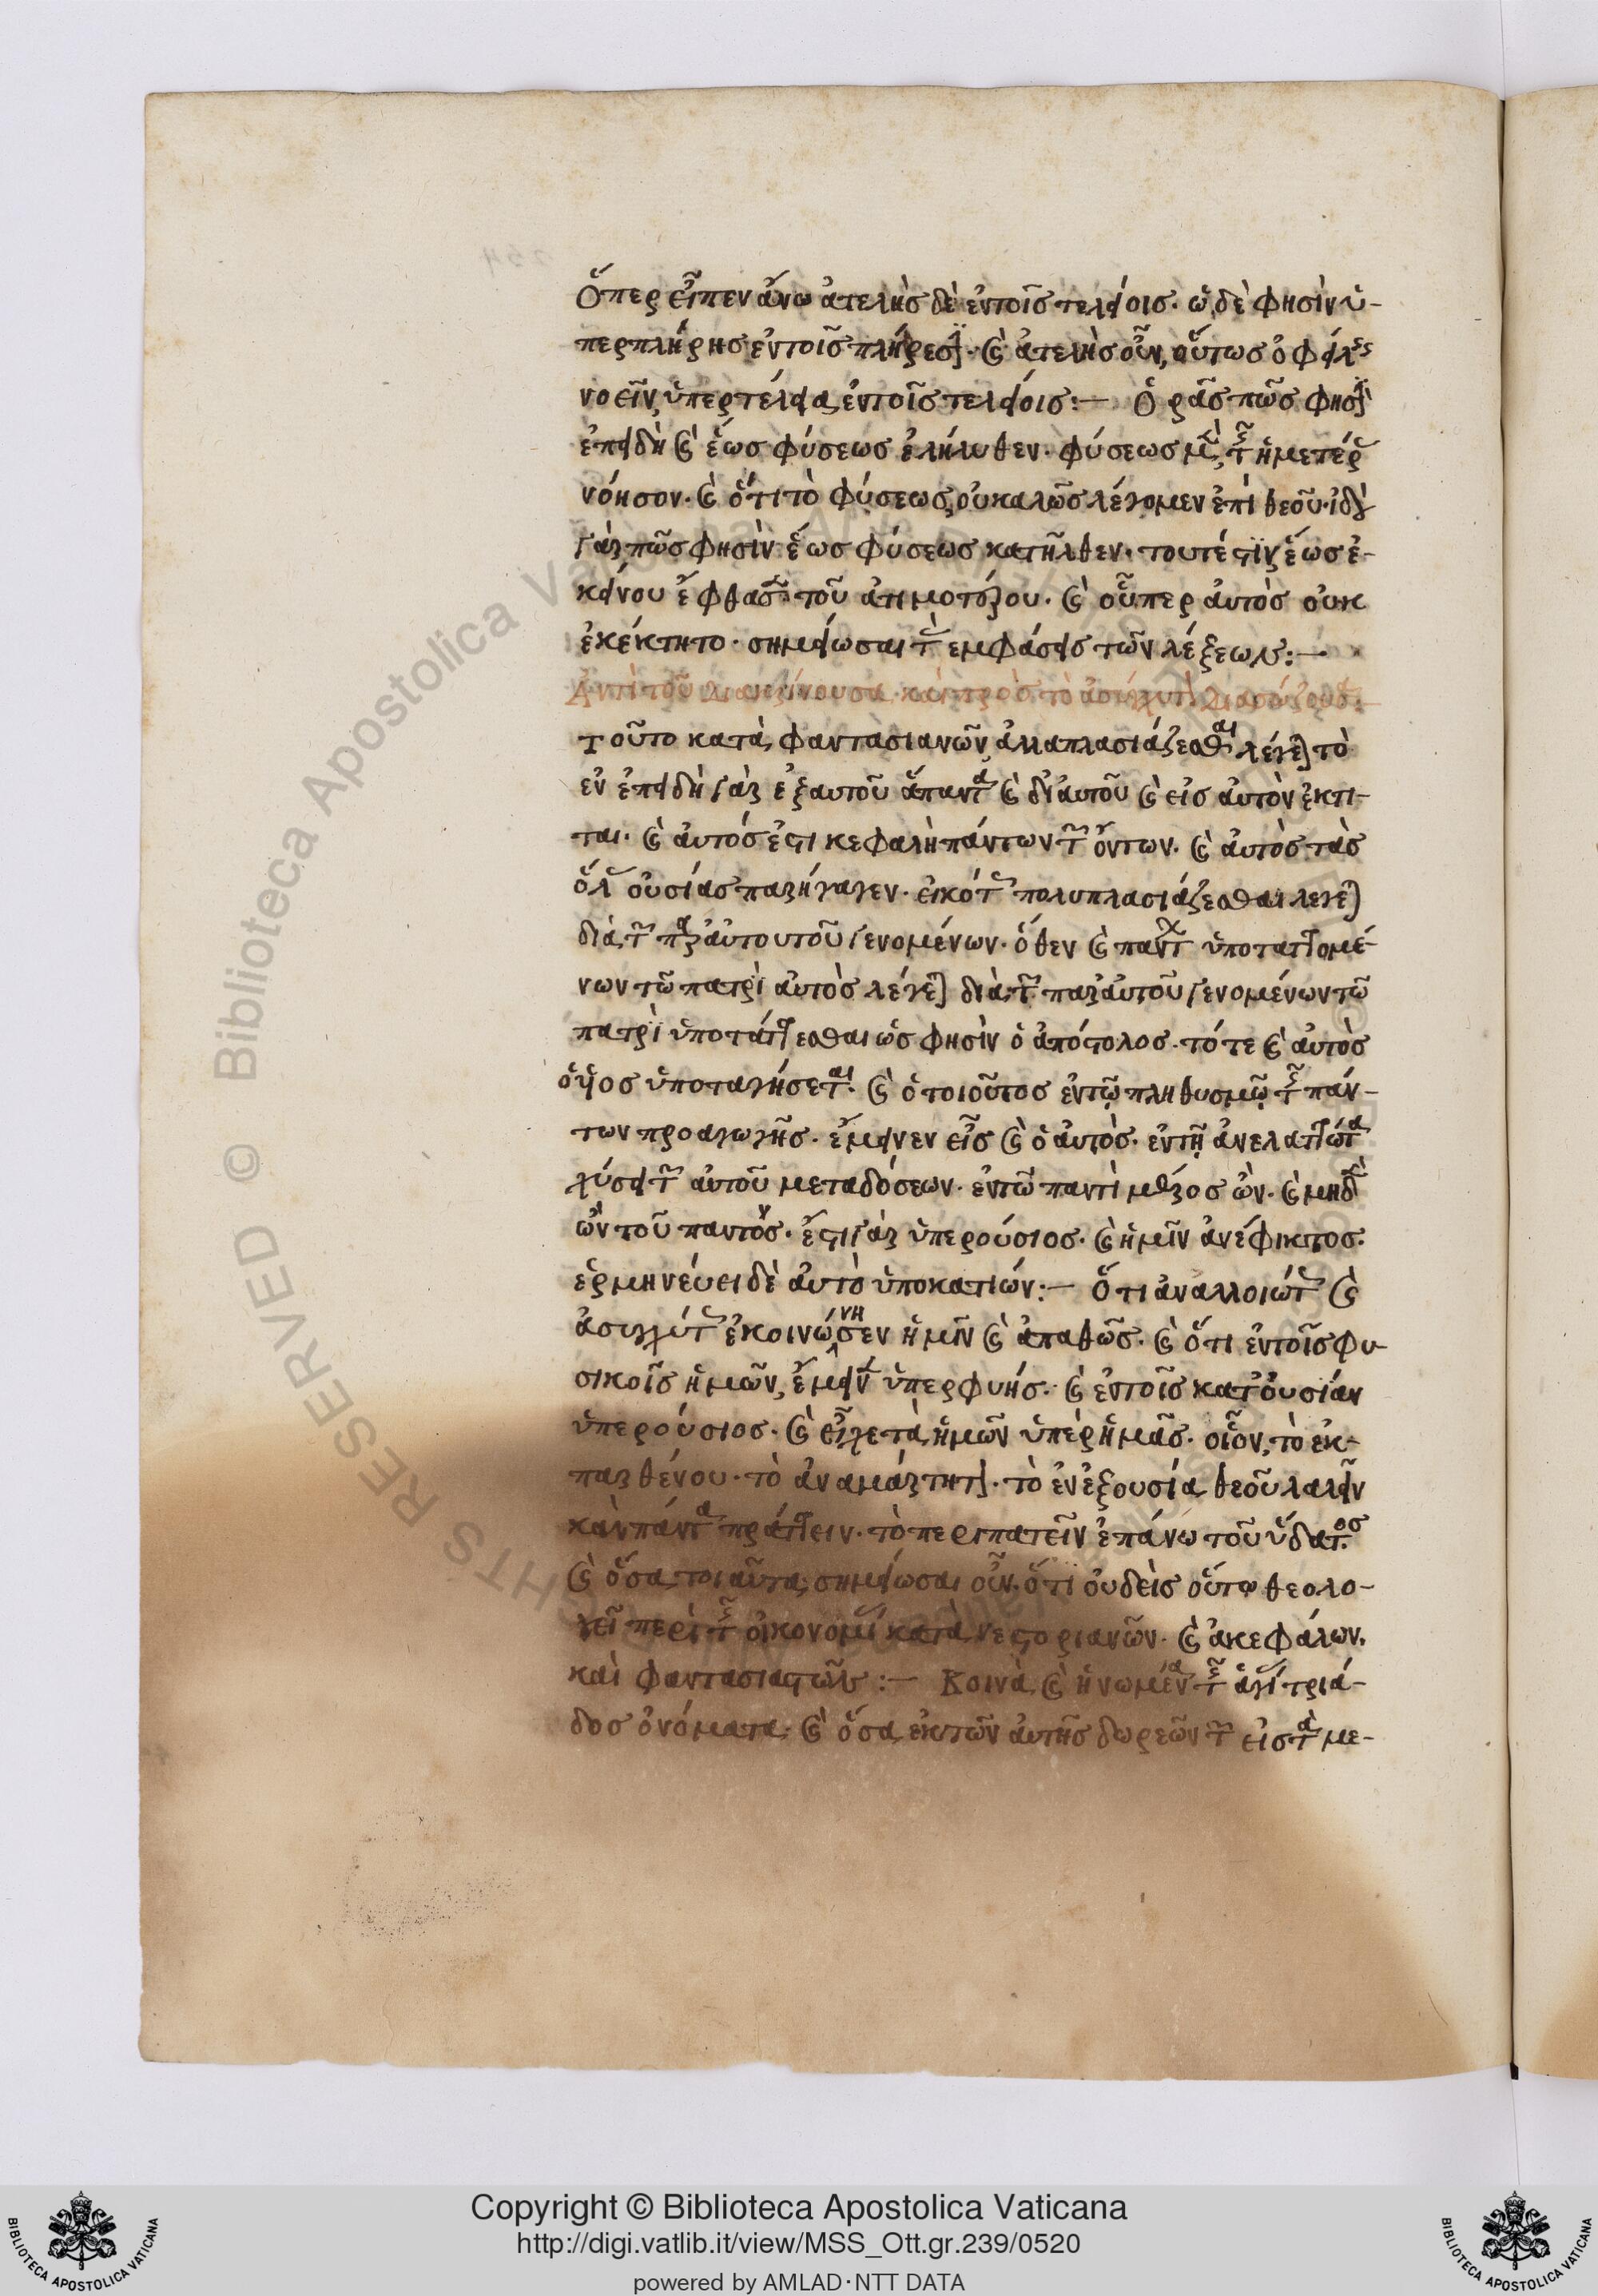 Ὅπερ εἶπεν ἄνω ἀτελὴς δὲ ἐν τοῖς τελείοις. ὧδε φησὶν ὑ-
περπλήρης ἐν τοῖς πλήρεσι. καὶ ἀτελὴς οὖν, οὕτως ὀφείλεις
νοεῖν, ὑπερτέλεια ἐν τοῖς τελείοις:— Ὁρᾶς πῶς φησὶ
ἐπειδὴ καὶ ἕως φύσεως ἐλήλυθεν. φύσεως μὲν τῆς ἡμετέρας
νόησον. καὶ ὅτι τὸ φύσεως, οὐ καλῶς λέγομεν ἐπὶ θεοῦ. ἰδοὺ
γὰρ πῶς φησὶν ἕως φύσεως κατῆλθεν. τουτέστιν ἕως ἐ-
κείνου ἔφθασεν τοῦ οὗπερ αὐτὸς οὐκ
ἐκέκτητο. σημείωσαι τὰς ἐμφάσεις τῶν λέξεων:—
Ἀντὶ τοῦ καὶ πρὸς τὸ
τοῦτο κατὰ φαντασιανῶν, πλασιάζεσθαι λέγεται τὸ
ἐν ἐπειδὴ γὰρ ἐξ αυτοῦ ἅπαντα καὶ δι' αὐτοῦ καὶ εἰς αὐτὸν ἔκτι-
ται. καὶ αὐτός ἐστι κεφαλὴ πάντων τῶν ὄντων. καὶ αὐτὸς τὰς
ὅλας οὐσίας παρήγαγεν. εἰκότως πολυπλασιάζεσθαι λέγεται
διὰ τῶν παρ' αὐτου τοῦ γενομένων. ὅθεν καὶ πάντων ὑποταττομέ-
νων τῶ πατρὶ αὐτὸς λέγεται διὰ τῶν παρ' αὐτοῦ γενομένων τῶ
πατρὶ ὑποτάττεσθαι ὥς φησὶν ὁ ἀπόστολος. τότε καὶ αὐτὸς
ὁ υἱος ὑποταγήσεται. καὶ ὁ τοιοῦτος ἐν τῶ πληθυσμῶ τῆς πάν-
των προαγωγῆς. ἔμεινεν εἷς καὶ ὁ αὐτὸς. ἐν τῇ ἀνελαττώτω
χύσει τῶν αὐτοῦ μεταδόσεων. ἐν τῶ παντὶ μέρος ὢν. καὶ μηδὲν
ὢν τοῦ παντός. ἔστι γὰρ ὑπερούσιος. καὶ ἡμῖν ἀνέφικτος.
ἑρμηνεύει δὲ αὐτὸ ὑποκατιών:— Ὅτι ἀναλλοιώτως καὶ
ἀσυγχύτως ἐκοινώνησεν ἡμῖν καὶ ἀπαθῶς. καὶ ὅτι ἐν τοῖς φυ-
σικοῖς ἡμῶν, ἔμεινεν ὑπερφυής. καὶ ἐν τοῖς κατ' οὐσίαν
ὑπερούσιος. καὶ εἶχε τὰ ἡμῶν ὑπὲρ ἡμᾶς. οἷον, τὸ ἐκ
παρθένου. τὸ ἀναμάρτητον. τὸ ἐν ἐξουσία θεοῦ λαλεῖν
κἂν πάντα πράττειν. τὸ περιπατεῖν ἐπάνω τοῦ ὕδατος
καὶ ὅσα τοιαῦτα, σημείωσαι οὖν. ὅτι οὐδεὶς οὕτω θεολο-
γεῖ περὶ τῆς οἰκονομίας κατὰ νεστοριανῶν. καὶ ἀκεφάλων.
καὶ φαντασιαστῶν:— Κοινὰ καὶ ἡνωμένα τῆς ἁγίας τριά-
δος ὀνόματα. καὶ ὅσα ἐκ τῶν αὐτῆς δωρεῶν τῶν εἰς τὰ με-
Copyright © Biblioteca Apostolica Vaticana
http://digi.vatlib.it/view/MSS_Ott.gr.239/0520
powered by AMLAD·NTT DATA